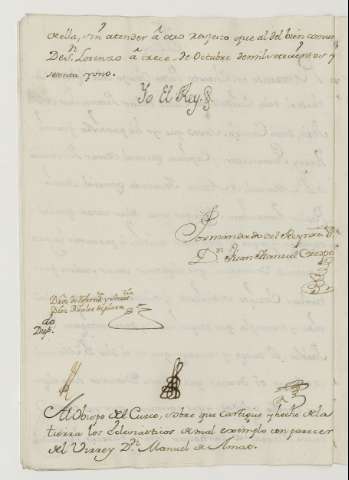 ella, sin atender à otro respeto que al del bien comun
De Sn. Lorenzo à trece de Octubre de mil setecientos y
sesenta y uno.
Yo El Rey.
Por mandado del Rey nro. Sr.
Dn. Juan Manuel Crespo
Dup.do
Al Obispo del Cuzco, sobre que castigue y heche de la
tierra los Eclesiasticos de mal exemplo con parecer
del Virrey Dn. Manuel de Amat.